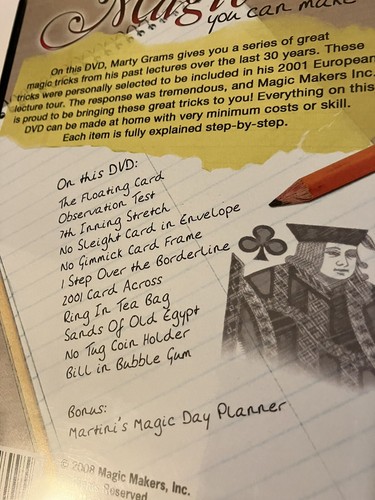 Magic
you can make
On this DVD, Marty Grams gives you a series of great
magic tricks from his past lectures over the last 30 years. These
tricks were personally selected to be included in his 2001 European
lecture tour. The response was tremendous, and Magic Makers Inc.
is proud to be bringing these great tricks to you! Everything on this
DVD can be made at home with very minimum costs or skill.
Each item is fully explained step-by-step.
On this DVD:
The Floating Card
Observation Test
7th Inning Stretch
No Sleight Card in Envelope
No Gimmick Card Frame
1 Step Over the Borderline
2001 Card Across
Ring In Tea Bag
Sands Of Old Egypt
No Tug Coin Holder
Bill in Bubble Gum
Bonus:
Martini's Magic Day Planner
© 2008 Magic Makers, Inc.
Reserved